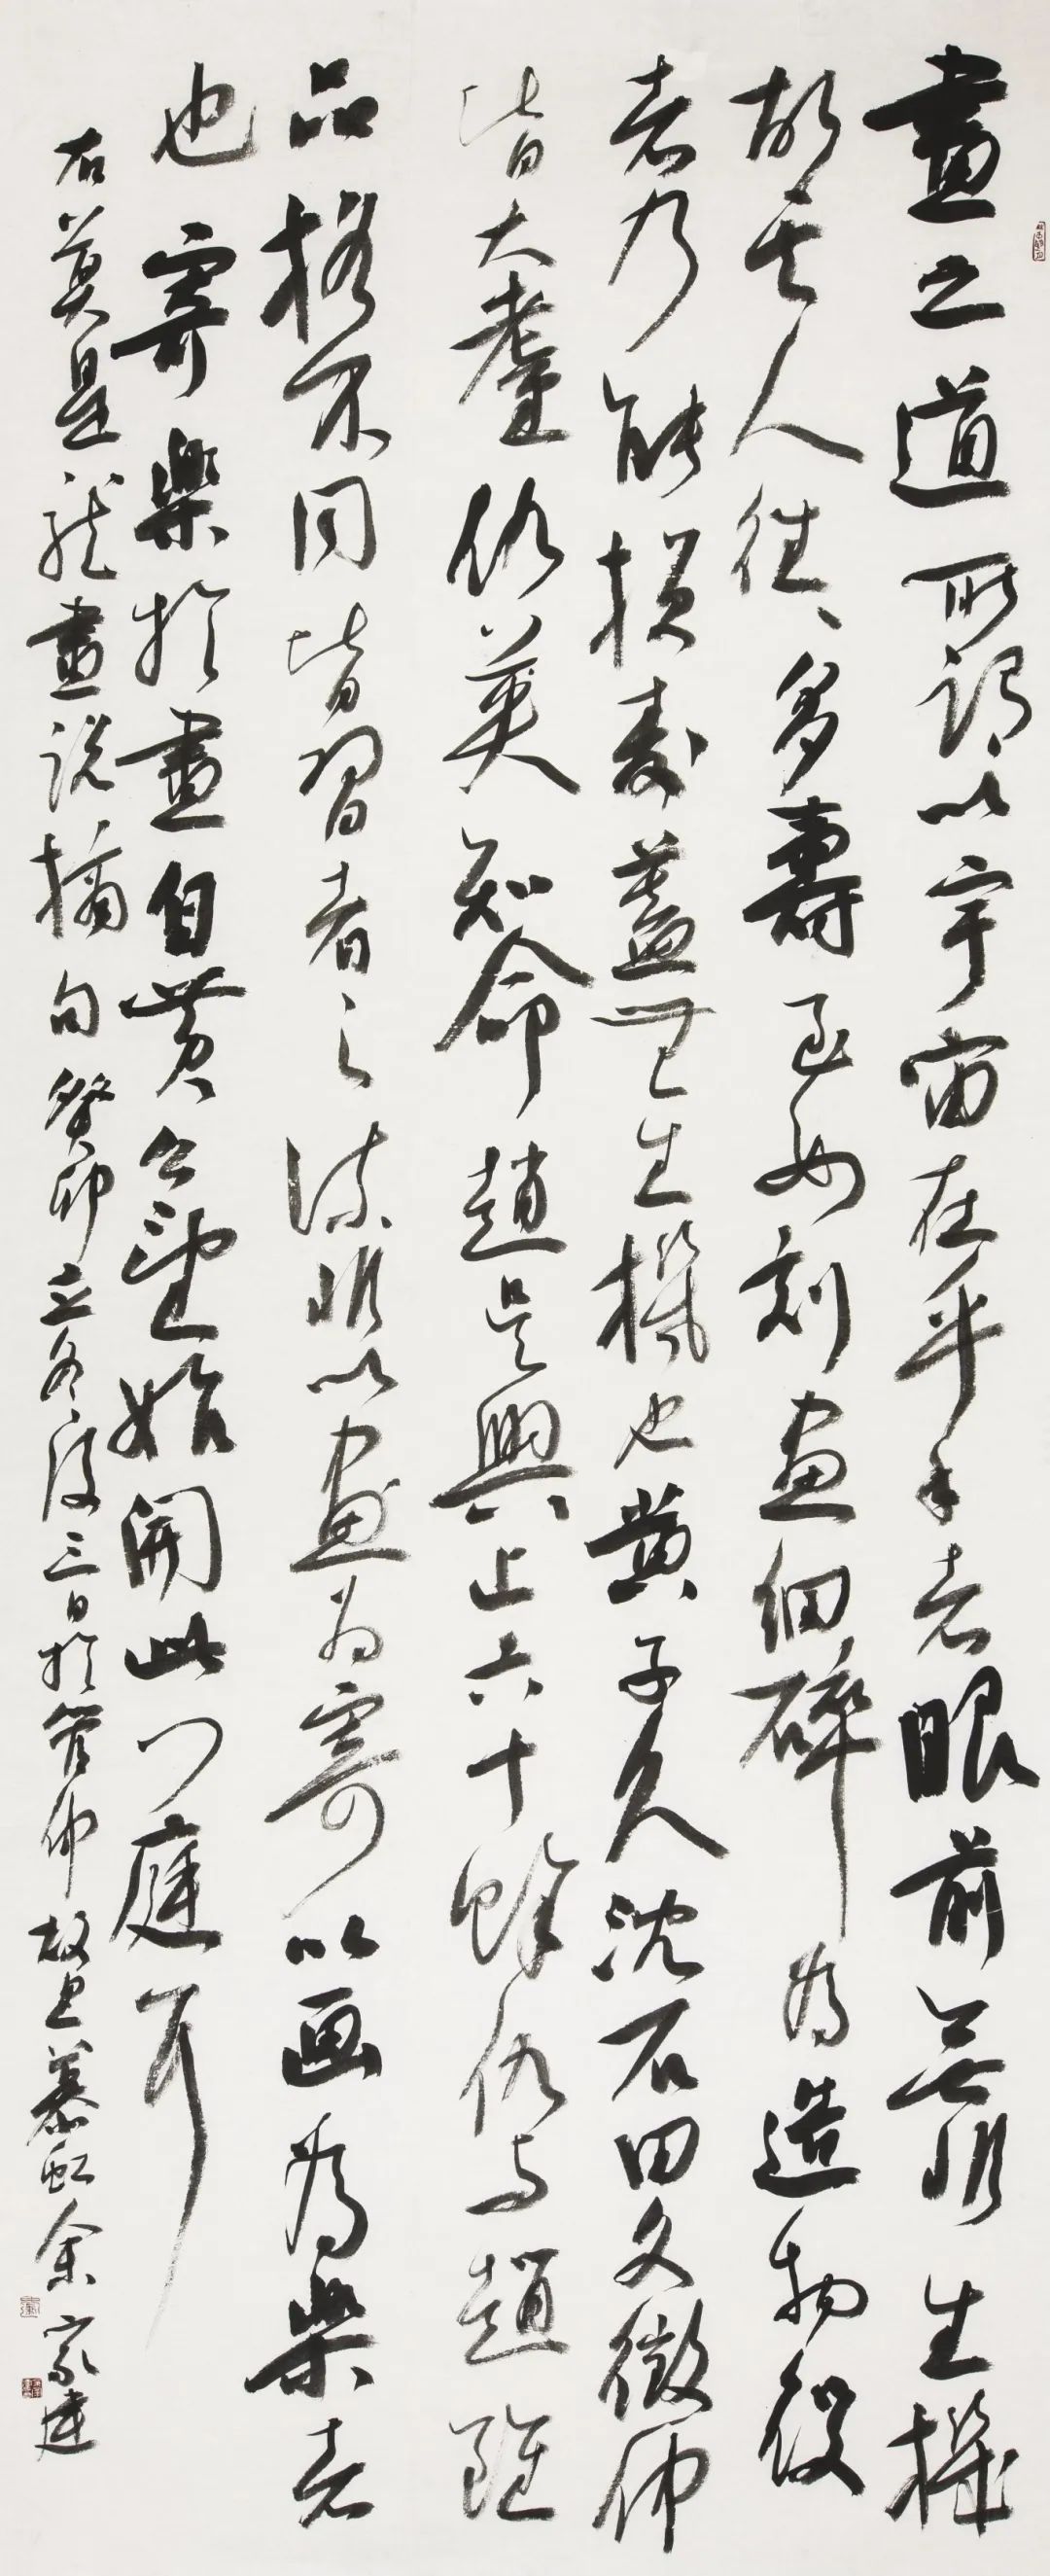 畫之道所謂以宇宙在乎手者眼前無非生機
故其人往、多壽至如刻畫細碎為造物役
者乃能損壽蓋無生機也黃子久沈石田文徵仲
皆大耋仇英知命趙吳興止六十餘仇与趙雖
品格不同皆習者之流非以畫為寄以画為樂者
也寄樂於畫自黃公望始開此門庭耳
右莫是龍畫說摘句癸卯立冬後三日於管仲故里慕虹余家達